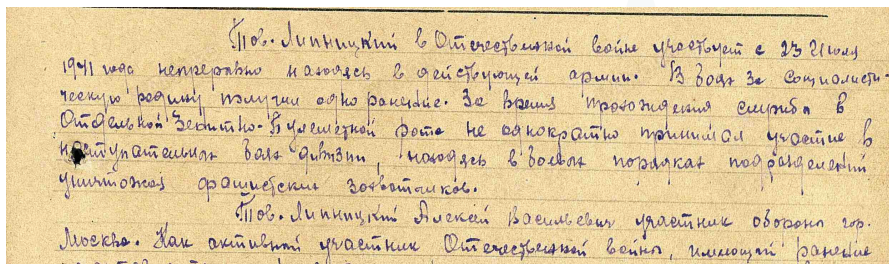 Тов. Липницкий в Отечественной войне участвует с 23 Июля
1941 года непрерывно находясь в действующей армии. В боях за социалисти-
ческую родину получил одно ранение. За время прохождения службы в
Отдельной Зенитно-Пулеметной роте не однократно принимал участие в
наступательных боях дивизии, находясь в боевых порядках подразделений
уничтожая фашистских захватчиков.
Тов. Липницкий Алексей Васильевич участник обороны гор.
Москва. Как активный участник Отечественной войны, имеющий ранение